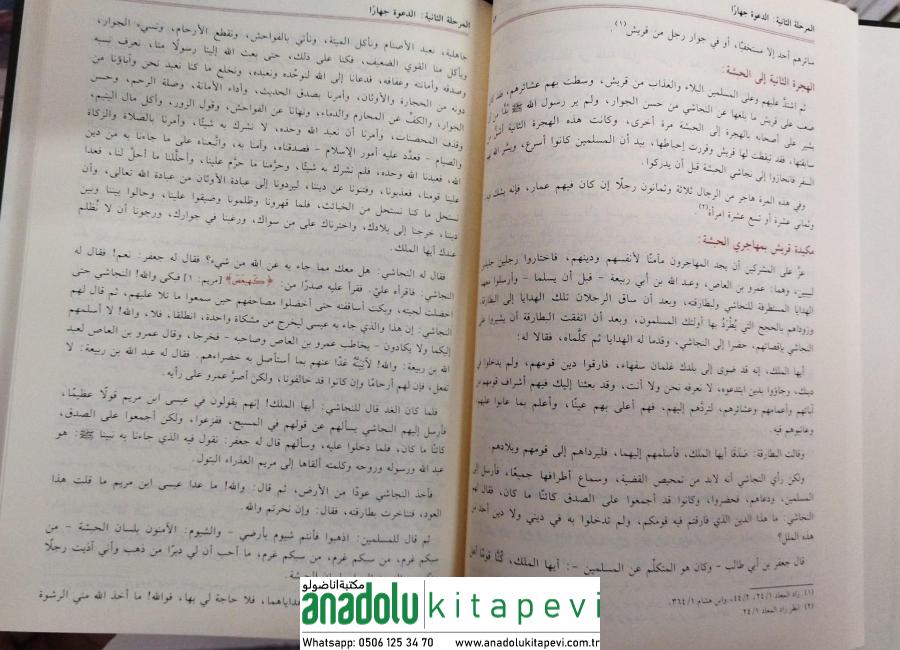 المرحلة الثانية: الدعوة جهارًا
سائرهم أحد إلا مستخفيًا، أو في جوار رجل من قريش(١).
الهجرة الثانية إلى الحبشة:
ثم اشتد عليهم وعلى المسلمين البلاء والعذاب من قريش، وسطت بهم عشائرهم، فقد كان
صعب على قريش ما بلغها عن النجاشي من حسن الجوار، ولم ير رسول الله ﷺ بُدًّا من أن
يشير على أصحابه بالهجرة إلى الحبشة مرة أخرى، وكانت هذه الهجرة الثانية أشق من
سابقتها، فقد تيقظت لها قريش وقررت إحباطها، بيد أن المسلمين كانوا أسرع، ويسّر الله لهم
السفر فانحازوا إلى نجاشي الحبشة قبل أن يدركوا.
وفي هذه المرة هاجر من الرجال ثلاثة وثمانون رجلًا إن كان فيهم عمار، فإنه يشك فيه،
وثماني عشرة أو تسع عشرة امرأة(٢).
مكيدة قريش بمهاجري الحبشة:
عزَّ على المشركين أن يجد المهاجرون مأمنًا لأنفسهم ودينهم، فاختاروا رجلين جلدين
لبيبين، وهما: عمرو بن العاص، وعبد الله بن أبي ربيعة – قبل أن يسلما – وأرسلوا معهما
الهدايا المستطرفة للنجاشي ولبطارقته، وبعد أن ساق الرجلان تلك الهدايا إلى البطارقة،
وزوداهم بالحجج التي يُطْرَدُ بها أولئك المسلمون، وبعد أن اتفقت البطارقة أن يشيروا على
النجاشي بإقصائهم، حضرا إلى النجاشي، وقدما له الهدايا ثم كلَّماه، فقالا له:
أيها الملك، إنه قد ضوى إلى بلدك غلمان سفهاء، فارقوا دين قومهم، ولم يدخلوا في
دينك، وجاؤوا بدين ابتدعوه، لا نعرفه نحن ولا أنت، وقد بعثنا إليك فيهم أشراف قومهم من
آبائهم وأعمامهم وعشائرهم، لتردَّهم إليهم، فهم أعلى بهم عينًا، وأعلم بما عابوا عليهم
وعاتبوهم فيه.
وقالت البطارقة: صَدَقَا أيها الملك، فأسلمهم إليهما، فليرداهم إلى قومهم وبلادهم.
ولكن رأى النجاشي أنه لابد من تمحيص القضية، وسماع أطرافها جميعًا، فأرسل إلى
المسلمين، ودعاهم، فحضروا، وكانوا قد أجمعوا على الصدق كائنًا ما كان، فقال لهم
النجاشي: ما هذا الدين الذي فارقتم فيه قومكم، ولم تدخلوا به في ديني ولا دين أحد من
هذه الملل؟
قال جعفر بن أبي طالب – وكان هو المتكلّم عن المسلمين –: أيها الملك، كُنَّا قومًا أهل
(١) زاد المعاد ٢٤/١، ٤٤/٢، وابن هشام ٣٦٤/١.
(٢) انظر زاد المعاد ٢٤/١
المرحلة الثانية: الدعوة جهارًا
جاهلية، نعبد الأصنام ونأكل الميتة، ونأتي بالفواحش، ونقطع الأرحام، ونسيء الجوار،
ويأكل منا القوي الضعيف، فكنا على ذلك، حتى بعث الله إلينا رسولًا منا، نعرف نسبه
وصدقه وأمانته وعفافه، فدعانا إلى الله لنوحّده ونعبده، ونخلع ما كنا نعبد نحن وآباؤنا من
دونه من الحجارة والأوثان، وأمرنا بصدق الحديث، وأداء الأمانة، وصلة الرحم، وحسن
الجوار، والكفّ عن المحارم والدماء، ونهانا عن الفواحش، وقول الزور، وأكل مال اليتيم،
وقذف المحصنات، وأمرنا أن نعبد الله وحده، لا نشرك به شيئًا، وأمرنا بالصلاة والزكاة
والصيام – فعدَّد عليه أمور الإسلام – فصدقناه، وآمنا به، واتَّبعناه على ما جاءنا به من دين
الله، فعبدنا الله وحده، فلم نشرك به شيئًا، وحرَّمنا ما حرَّم علينا، وأحلَّلنا ما أحلّ لنا، فعدا
علينا قومنا، فعذبونا، وفتنونا عن ديننا، ليردونا إلى عبادة الأوثان من عبادة الله تعالى، وأن
نستحل ما كنا نستحل من الخبائث، فلما قهرونا وظلمونا وضيقوا علينا، وحالوا بيننا وبين
ديننا، خرجنا إلى بلادك، واخترناك على من سواك، ورغبنا في جوارك، ورجونا أن لا نُظلم
عندك أيها الملك.
فقال له النجاشي: هل معك مما جاء به عن الله من شيء؟ فقال له جعفر: نعم! فقال له
النجاشي: فاقرأه عليّ، فقرأ عليه صدرًا من: ﴿كهيعص﴾ [مريم: ١] فبكى والله! النجاشي حتى
اخضلت لحيته، وبكت أساقفته حتى أخضلوا مصاحفهم حين سمعوا ما تلا عليهم، ثم قال لهم
النجاشي: إن هذا والذي جاء به عيسى ليخرج من مشكاة واحدة، انطلقا، فلا، والله! لا أسلمهم
إليكما ولا يكادون – يخاطب عمرو بن العاص وصاحبه – فخرجا، وقال عمرو بن العاص لعبد
الله بن ربيعة: والله! لآتينّه غدًا عنهم بما أستأصل به خضراءهم. فقال له عبد الله بن ربيعة: لا
تفعل، فإن لهم أرحامًا وإن كانوا قد خالفونا، ولكن أصرَّ عمرو على رأيه.
فلما كان الغد قال للنجاشي: أيها الملك! إنهم يقولون في عيسى ابن مريم قولًا عظيمًا،
فأرسل إليهم النجاشي يسألهم عن قولهم في المسيح، ففزعوا، ولكن أجمعوا على الصدق،
كائنًا ما كان، فلما دخلوا عليه، وسألهم قال له جعفر: نقول فيه الذي جاءنا به نبينا ﷺ: هو
عبد الله ورسوله وروحه وكلمته ألقاها إلى مريم العذراء البتول.
فأخذ النجاشي عودًا من الأرض، ثم قال: والله! ما عدا عيسى ابن مريم ما قلت هذا
العود، فتناخرت بطارقته، فقال: وإن نخرتم والله.
ثم قال للمسلمين: اذهبوا فأنتم شيوم بأرضي – والشيوم: الآمنون بلسان الحبشة – من
سبكم غرم، من سبكم غرم، من سبكم غرم، ما أحب أن لي دبرًا من ذهب وأني آذيت رجلًا
الحبشة.
هداياهما، فلا حاجة لي بها، فوالله! ما أخذ الله مني الرشوة
مكتبة اناضولو
anadolukitapevi
Whatsapp: 0506 125 34 70 www.anadolukitapevi.com.tr